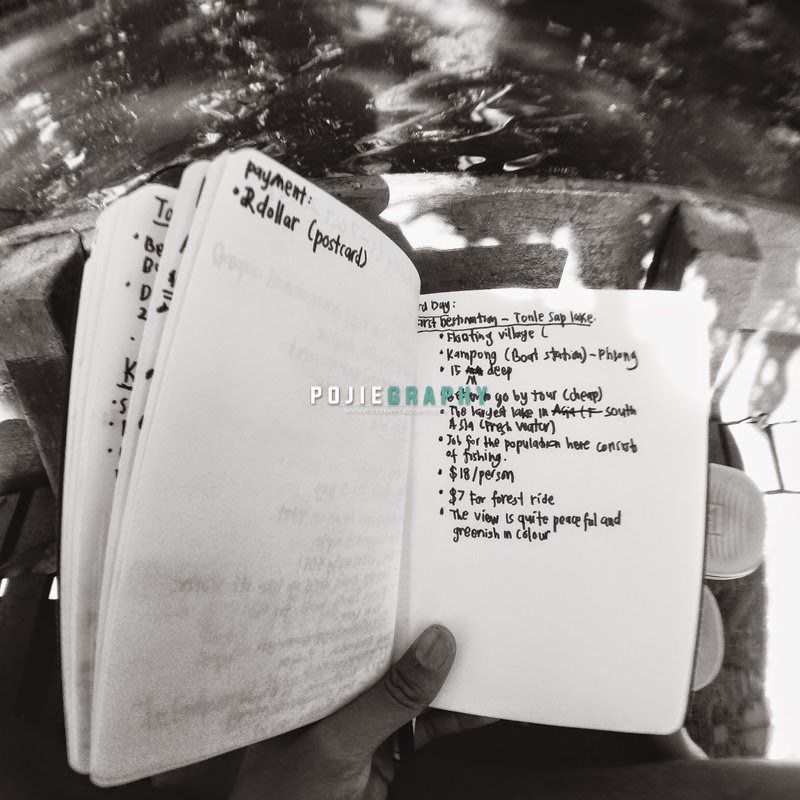 payment:
• 2dollar (postcard)
rd Day:
First Destination - Tonle Sap lake.
• Floating village (
• Kampong (Boat station) - Phlong
• 15 m deep
go by tour (cheap)
• The largest lake in Asia ( F south
Asia (Fresh water)
• Job for the population here consists
of fishing.
• $18/person
• $7 for forest ride
• The view is quite peaceful and
greenish in colour
POJIEGRAPHY